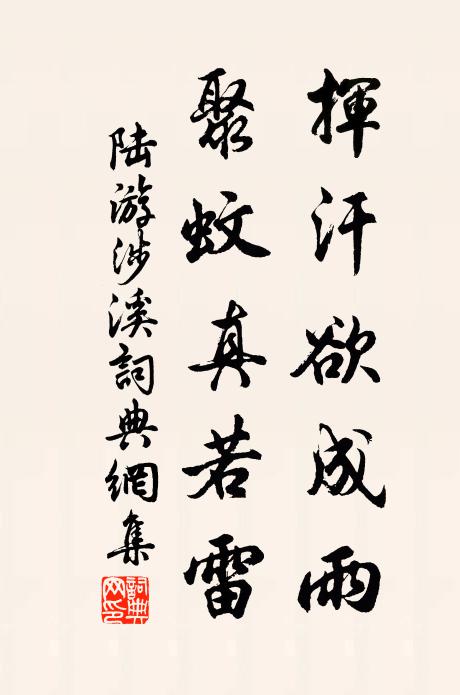 揮汗欲成雨
聚蚊真若雷
陆游涉溪詞典網集
詞典網印